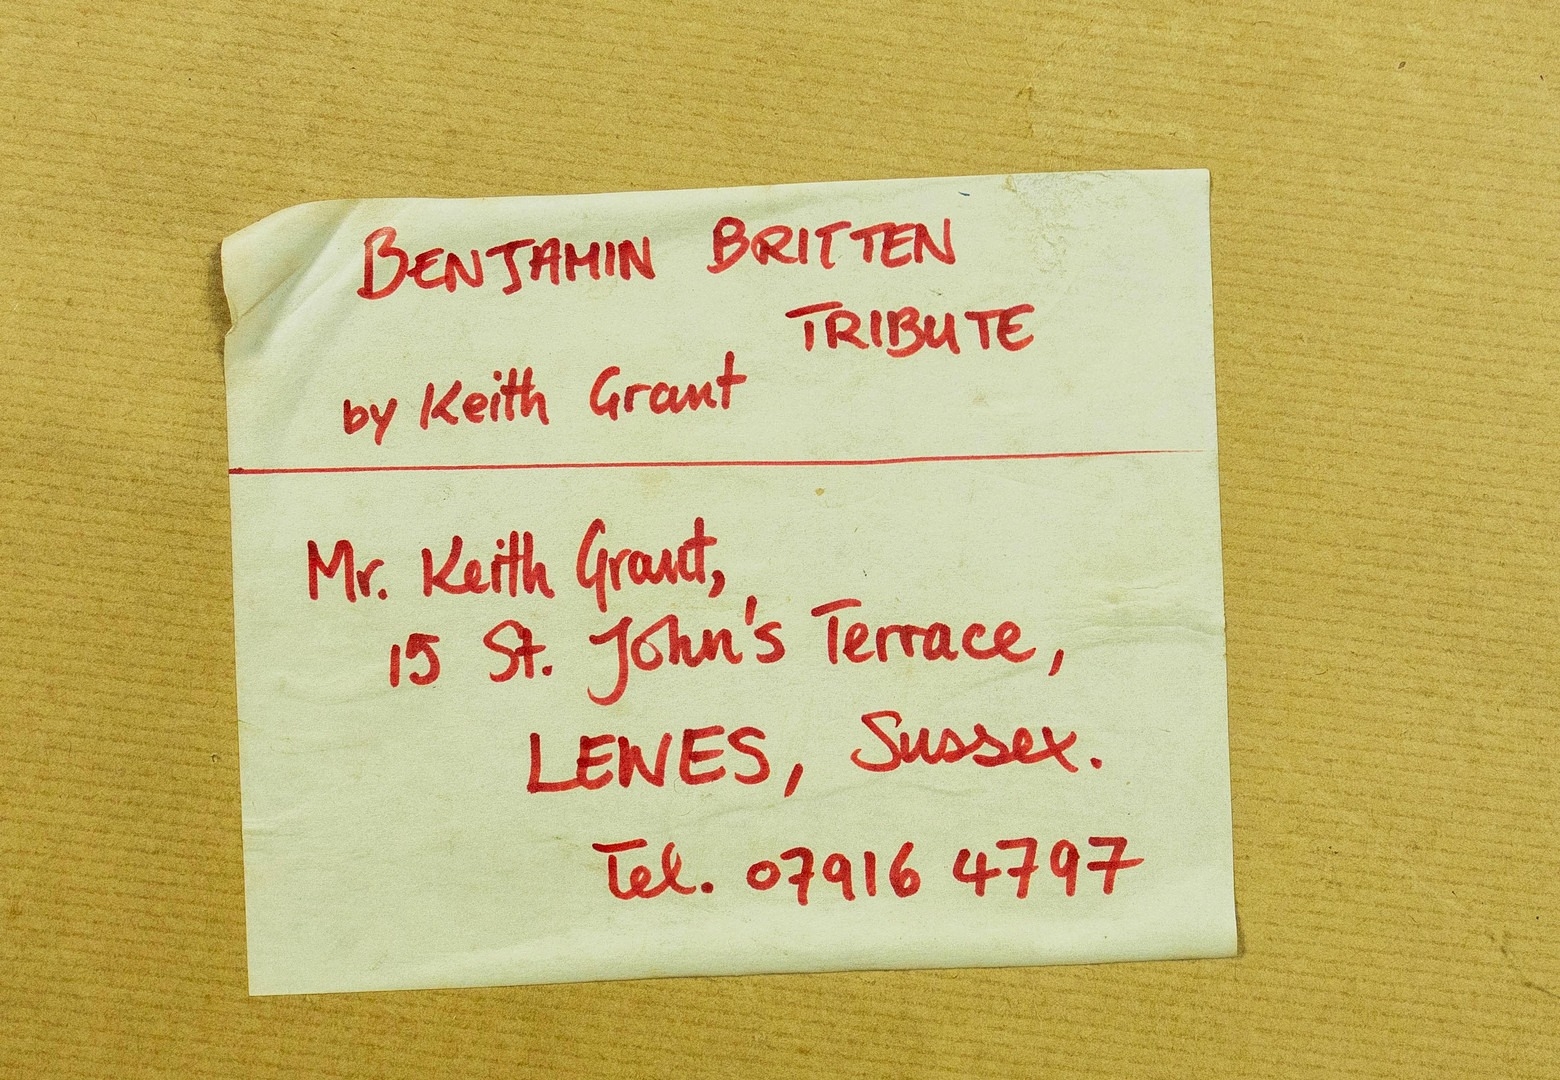 BENJAMIN BRITTEN
TRIBUTE
by Keith Grant
Mr. Keith Grant,
15 St. John's Terrace,
LEWES, Sussex.
Tel. 07916 4797